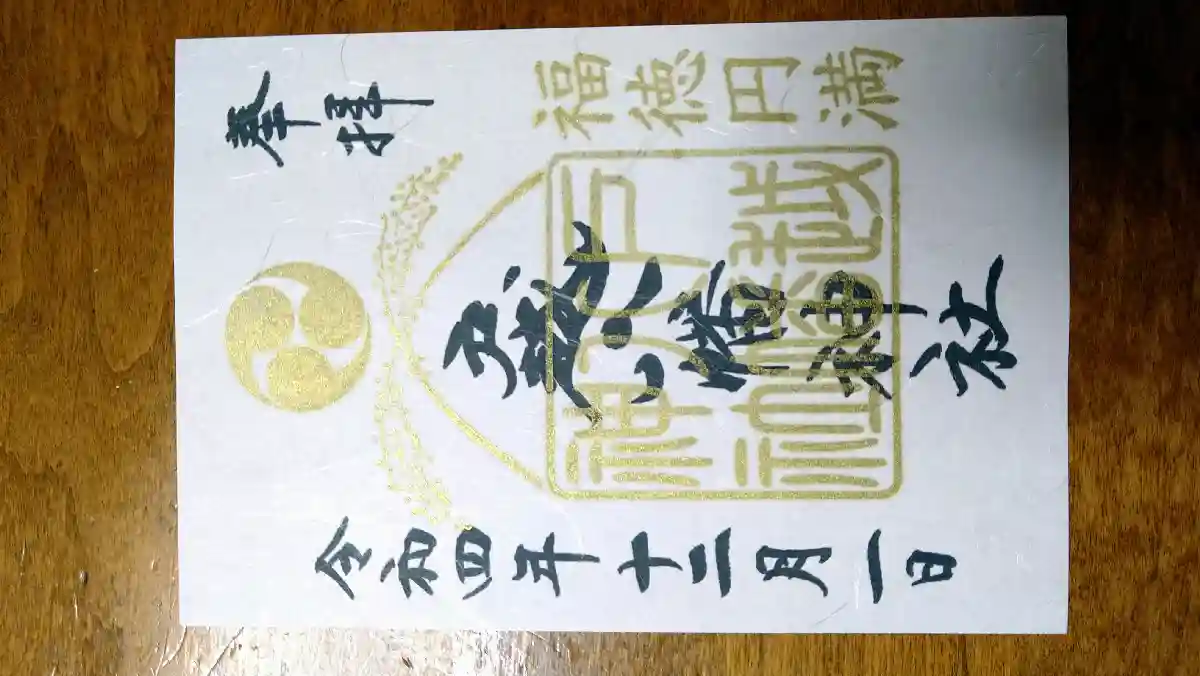 奉拝
福徳円満
戸越八幡神社
戸越八幡神社
令和四年十二月一日